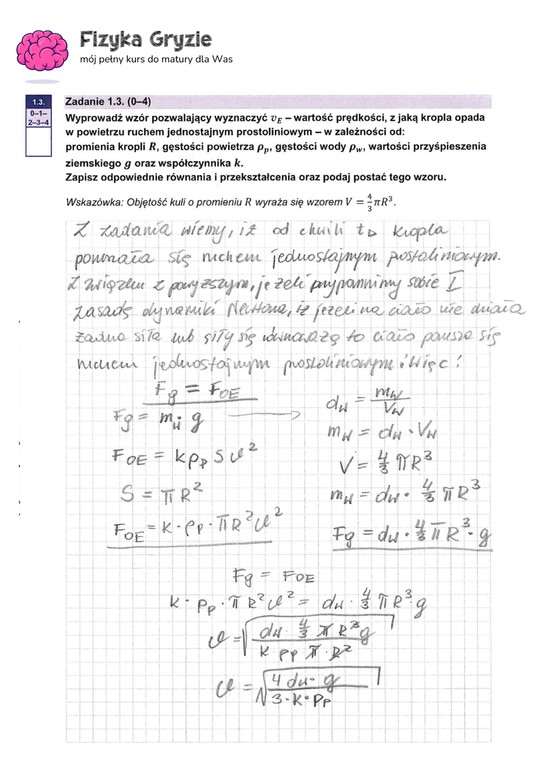 Fizyka Gryzie
mój pełny kurs do matury dla Was
1.3.
0–1–
2–3–4
Zadanie 1.3. (0–4)
Wyprowadź wzór pozwalający wyznaczyć v_E – wartość prędkości, z jaką kropla opada
w powietrzu ruchem jednostajnym prostoliniowym – w zależności od:
promienia kropli R, gęstości powietrza ρ_p, gęstości wody ρ_w, wartości przyśpieszenia
ziemskiego g oraz współczynnika k.
Zapisz odpowiednie równania i przekształcenia oraz podaj postać tego wzoru.
Wskazówka: Objętość kuli o promieniu R wyraża się wzorem V = 4/3 πR³.
Z zadania wiemy, iż od chwili t_D kropla
poruszała się ruchem jednostajnym prostoliniowym.
Z związku z powyższym, jeżeli przypomnimy sobie I
zasadę dynamiki Newtona, iż jeżeli na ciało nie działa
żadna siła lub siły się równoważą to ciało porusza się
ruchem jednostajnym prostoliniowym i więc:
Fg = F_OE
Fg = m_w · g
F_OE = kρ_p S v²
S = πR²
F_OE = k · ρ_p · πR² v²
d_w = m_w / V_w
m_w = d_w · V_w
V = 4/3 πR³
m_w = d_w · 4/3 πR³
Fg = d_w · 4/3 πR³ · g
Fg = F_OE
k · ρ_p · πR² v² = d_w · 4/3 πR³ g
v = √(d_w · 4/3 πR³ g / k ρ_p π · R²)
v = √(4 d_w · g / 3 · k · ρ_p)